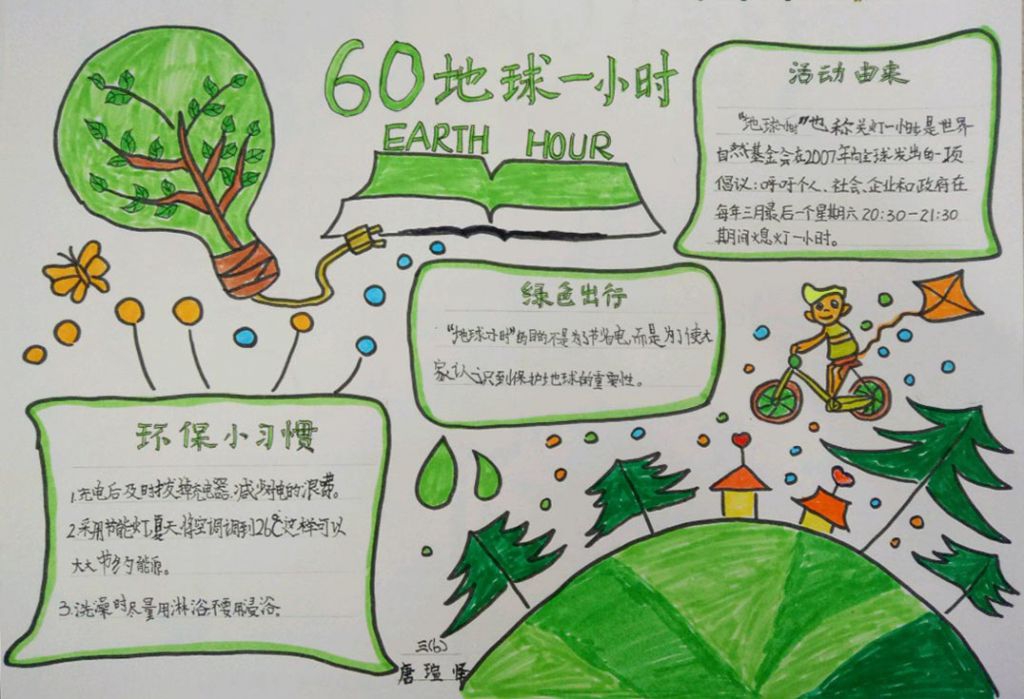 60地球一小时
EARTH HOUR
活动由来
"地球一小时"也称关灯一小时是世界
自然基金会在2007年向全球发出的一项
倡议：呼吁个人、社会、企业和政府在
每年三月最后一个星期六20:30-21:30
期间熄灯一小时。
绿色出行
"地球一小时"的目的不是为了节省电,而是为了使大
家认识到保护地球的重要性。
环保小习惯
1.充电后及时拔掉充电器,减少对电的浪费。
2.采用节能灯,夏天将空调调到26℃这样可以
大大节约能源。
3.洗澡时尽量用淋浴不要用浸浴。
三(6)
唐瑄